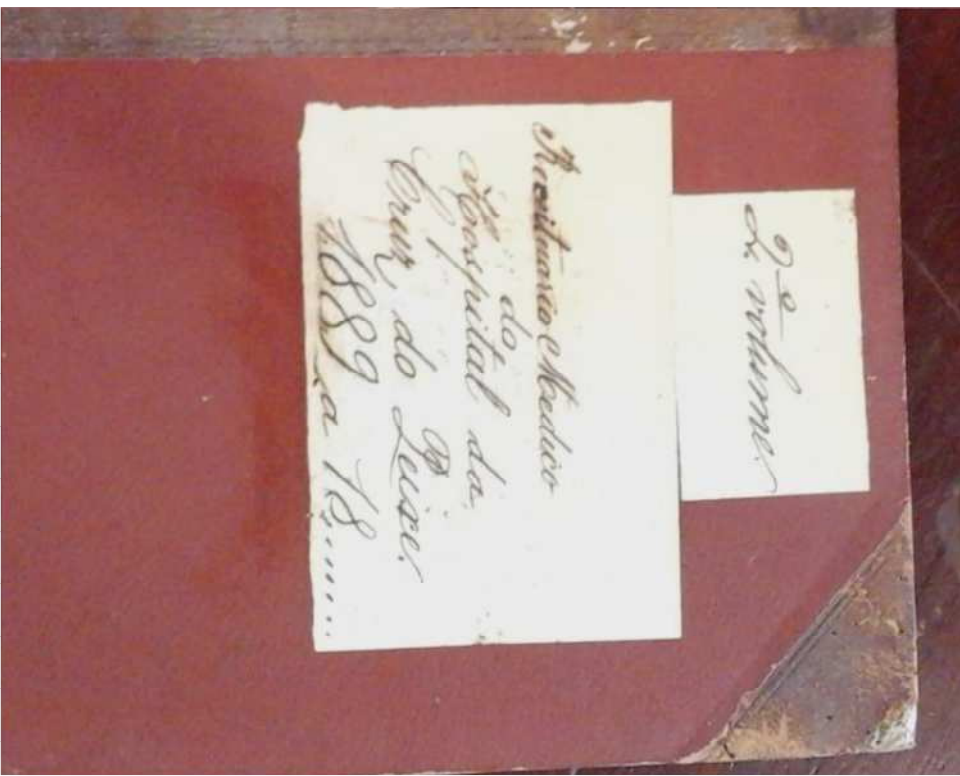 2º volume
Receituario Medico
do
Hospital da
Cruz do Peixe.
1889 a 18......